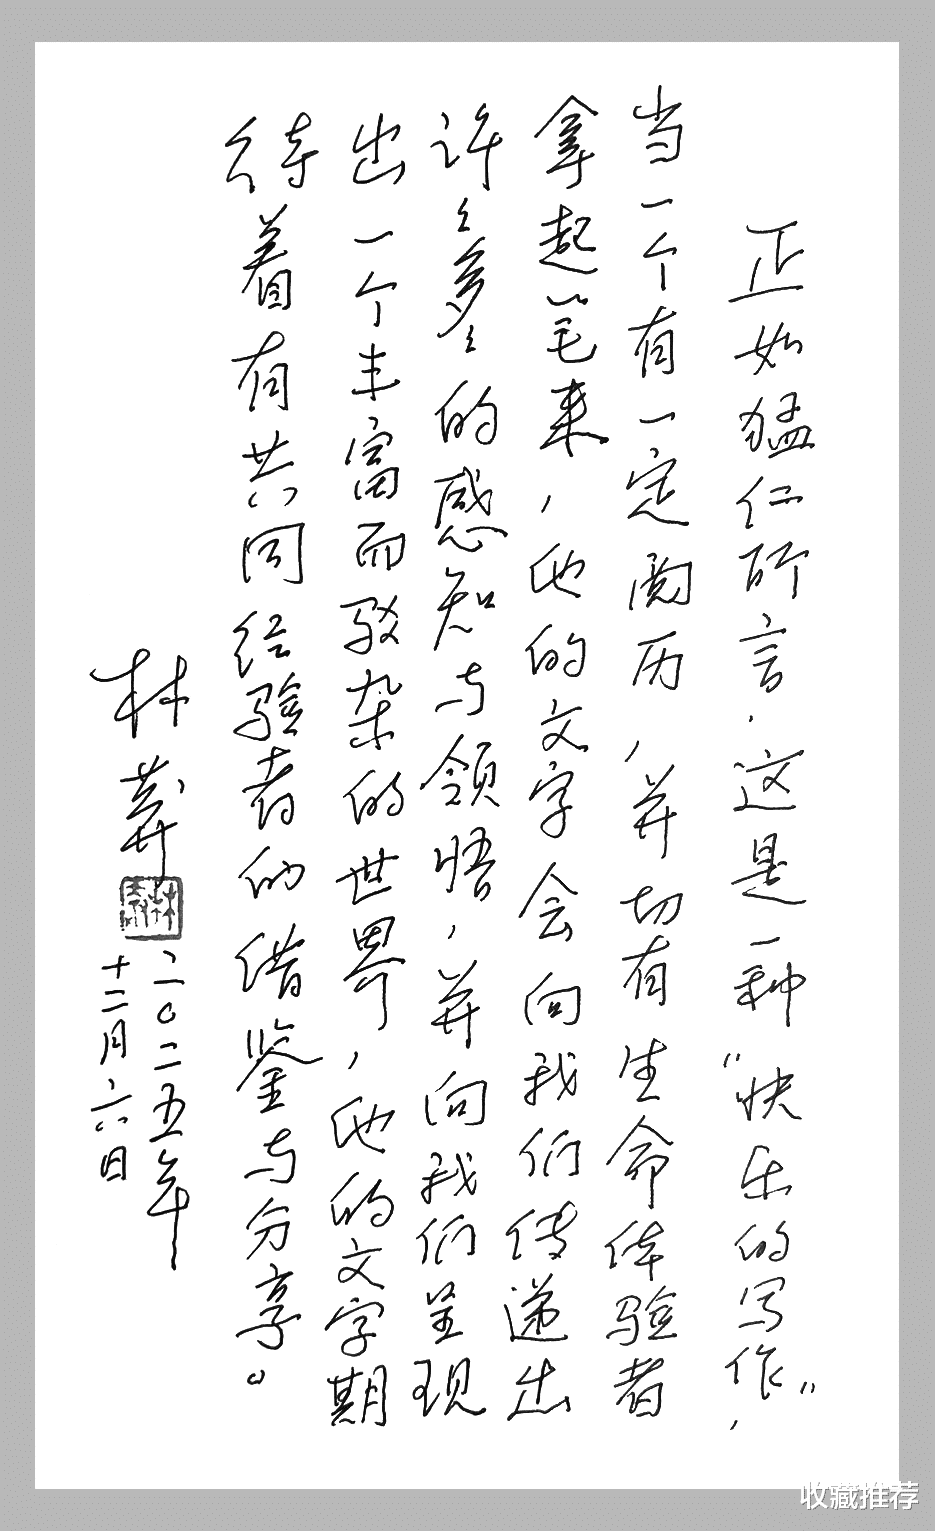 正如猛仁所言，这是一种“快乐的写作”，
当一个有一定阅历，并切有生命体验者
拿起笔来，他的文字会向我们传递出
许许多多的感知与领悟，并向我们呈现
出一个丰富而驳杂的世界，他的文字期
待着有共同经验者的借鉴与分享。
林莽
二〇二五年
十二月六日
收藏推荐